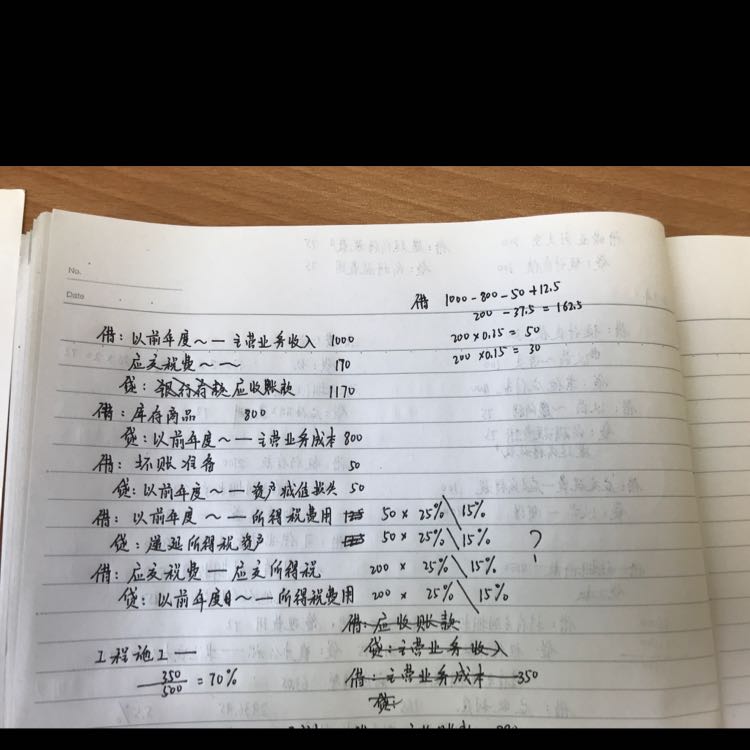 No.
Date
借 1000-800-50+12.5
200-37.5=162.5
200×0.25=50
200×0.15=30
借：以前年度～—主营业务收入 1000
应交税费～— 170
贷：应收账款 1170
借：库存商品 800
贷：以前年度～—主营业务成本 800
借：坏账准备 50
贷：以前年度～—资产减值损失 50
借：以前年度～—所得税费用 50×25%\15%
贷：递延所得税资产 50×25%\15% ?
借：应交税费—应交所得税 200×25%\15%
贷：以前年度～—所得税费用 200×25%\15%
借：应收账款
工程施工— 贷：主营业务收入
350/500=70% 借：主营业务成本 350
贷：